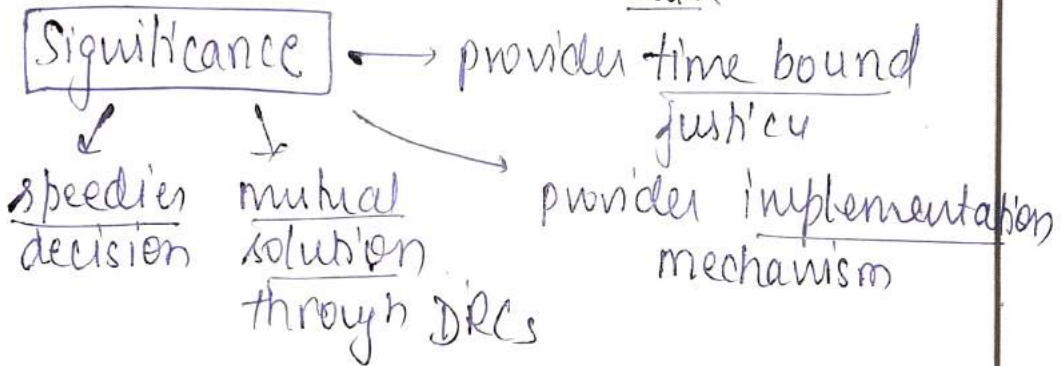 Significance → provides time bound
justice
speedier decision
mutual solution through DRCs
provides implementation
mechanism